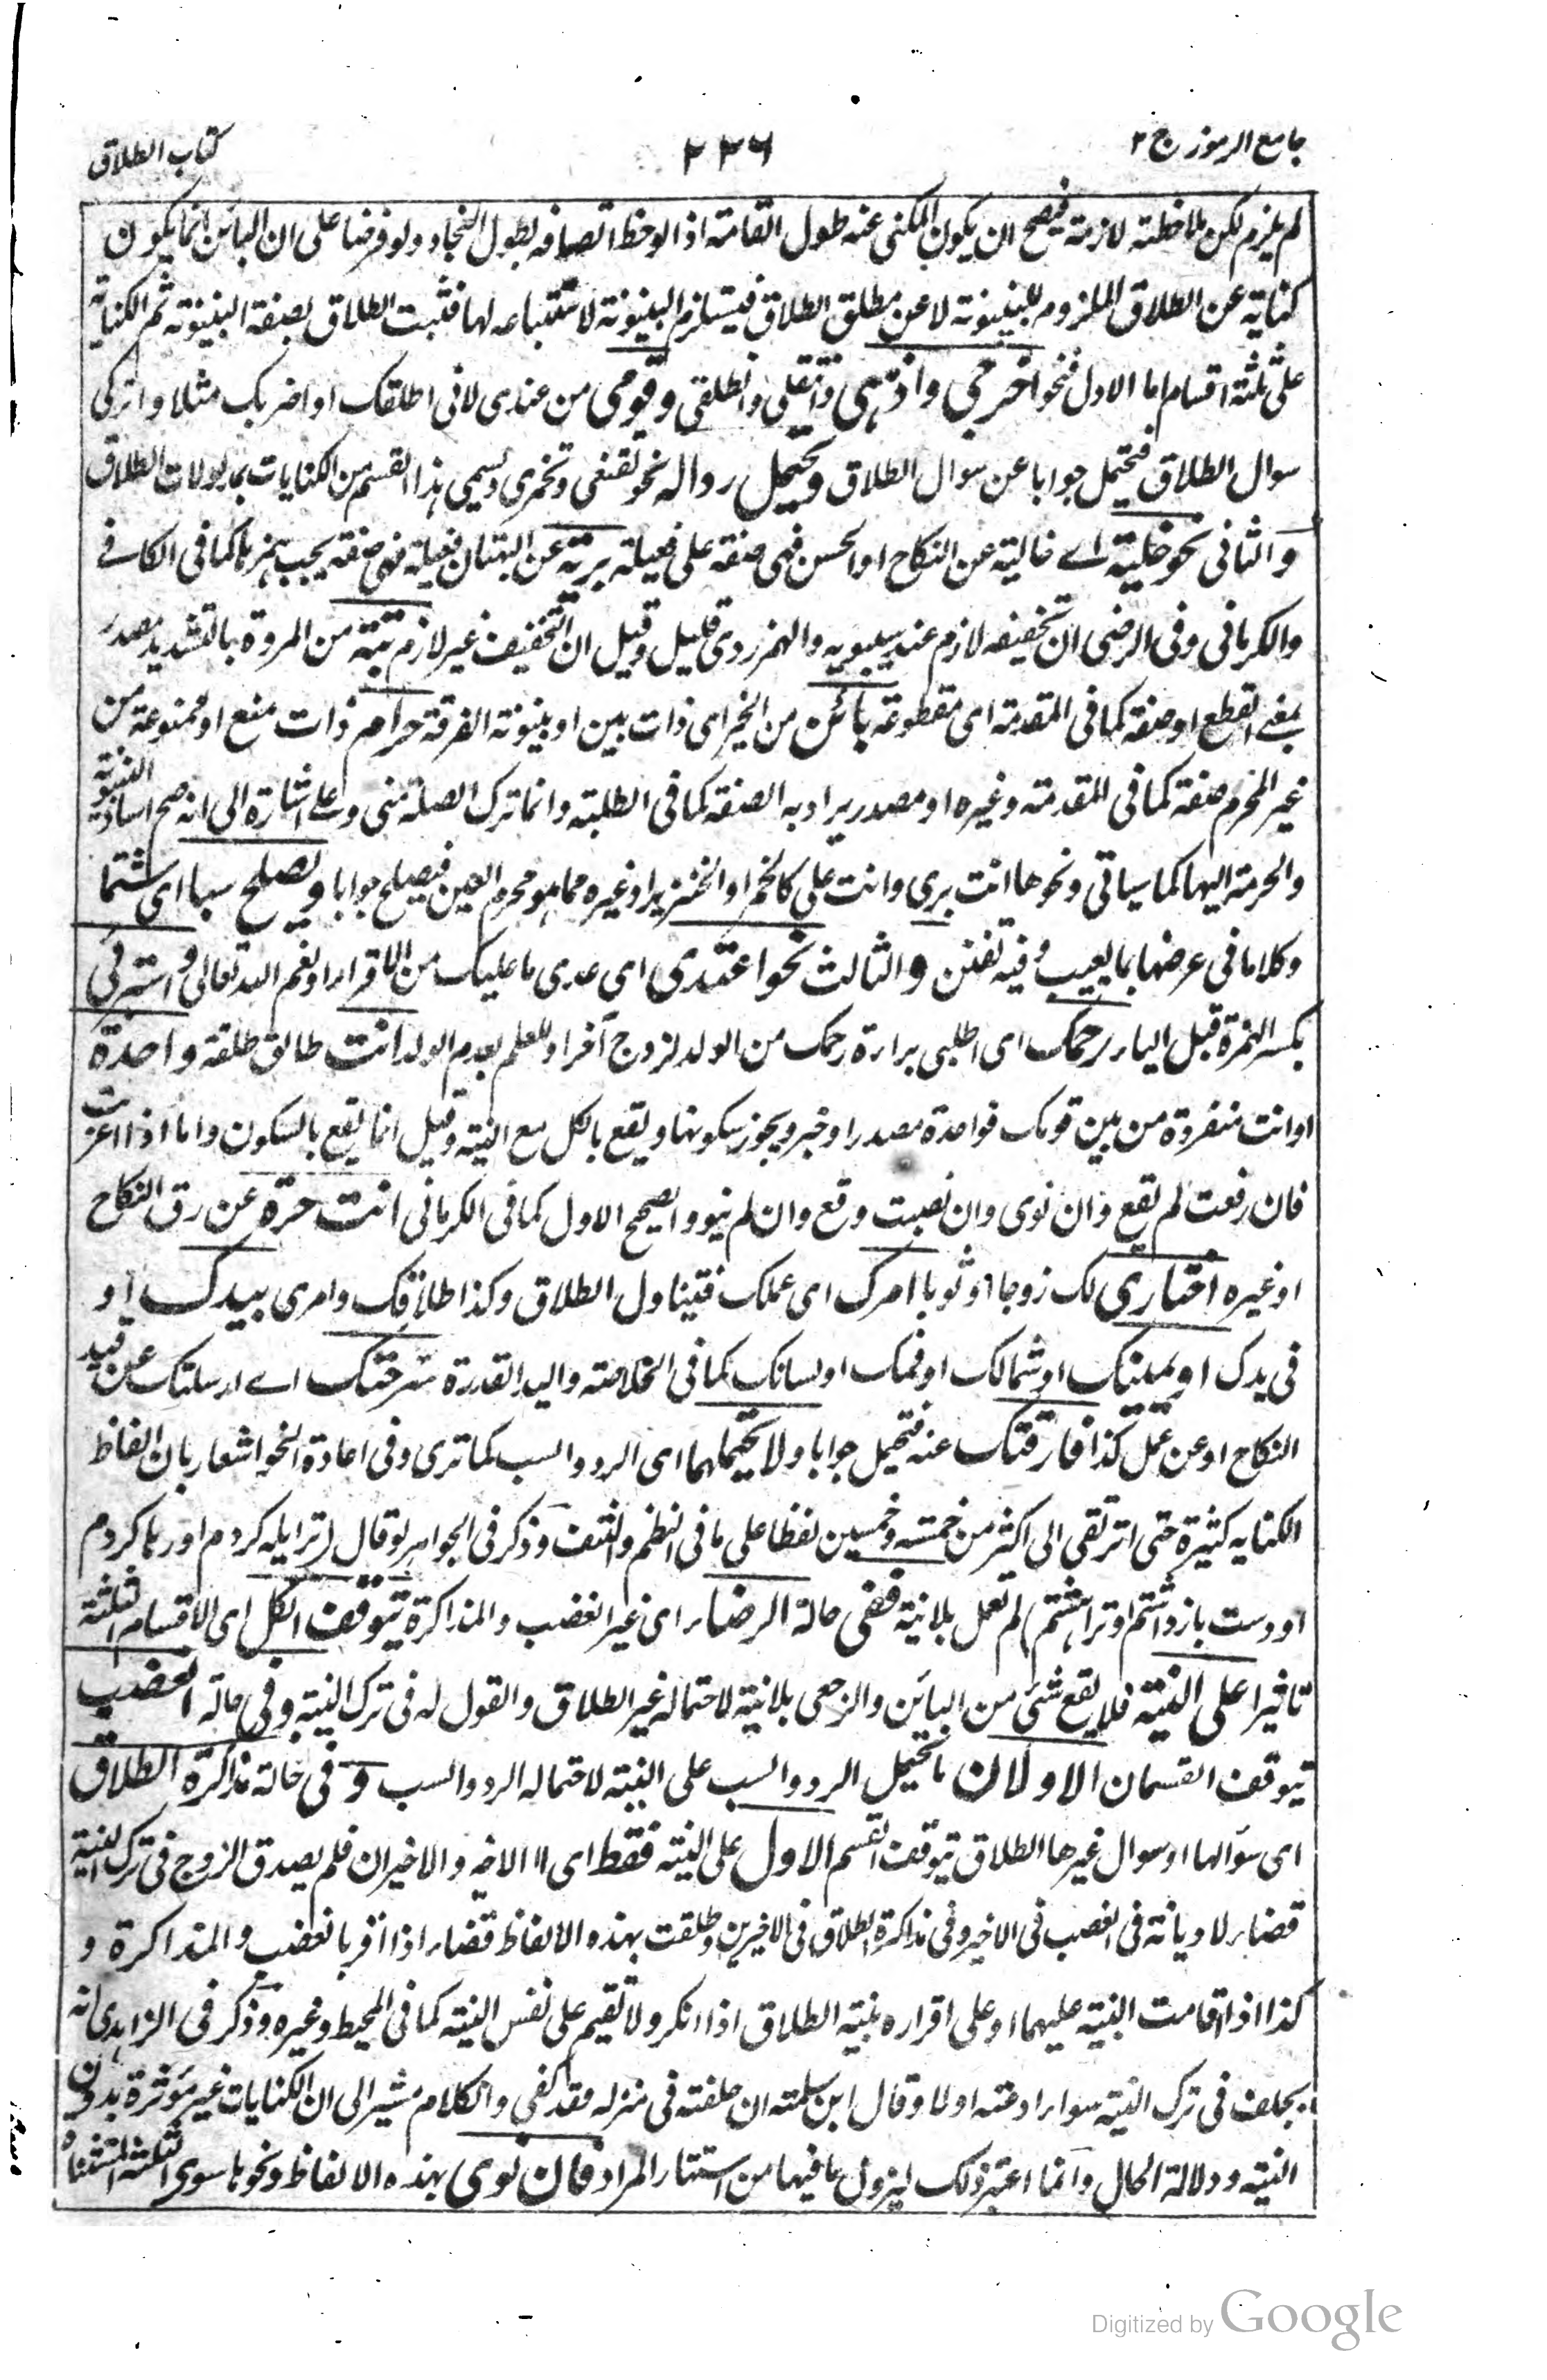 جامع الرموز ج ٢
٢٢٦
كتاب الطلاق
لم يلزم لكن ملاحظته لازمة فيصح ان يكون المكنى عنه طول القامة اذا لوحظ اتصافه بطول النجاد ولو فرضنا على ان البائن انما يكون
كناية عن الطلاق الملزوم للبينونة لا عن مطلق الطلاق فيستلزم البينونة لاستتباعه لها فثبت الطلاق بصفة البينونة ثم الكناية
على ثلثة اقسام اما الاول فنحو اخرجي واذهبى وانتقلى وانطلقى وقومى من عندى لانى اطلقك او اضربك مثلا واتركى
سوال الطلاق فيحتمل جوابا عن سوال الطلاق ويحتمل ردا له نحو تقنعى وتخمرى ويسمى هذا القسم من الكنايات بمدلولات الطلاق
والثانى نحو خلية اے خالية عن النكاح او الحسن فهى صفة على فعيلة برية عن البهتان فعيلة فهى صفة يجب همزها كما فى الكافے
والكرمانى وفى الرضى ان تخفيفه لازم عند سيبويه والهمز ردى قليل وقيل ان التخفيف غير لازم بتة من المروة بالتشديد مصدر
بمعنے القطع او صفة كما فى المقدمة اى مقطوعة بائن من الخير اى ذات بين او بينونة الفرقة حرام ذات منع او ممنوعة من
غير المحرم صفة كما فى المقدمة وغيره او مصدر يراد به الصفة كما فى الطلبة وانما ترك الصلة منى وعلى اشارة الى انه صح اسناد البينونة
والحرمة اليها كما سياتى ونحوها انت برى وانت على كالخمر او الخنزير او غيره مما هو محرم العين فيصلح جوابا ويصلح سبا اى شتما
وكلاما فى عرضها بما يعيب وفيه تفنن والثالث نحو اعتدى اى عدى ما عليك من الاقراء او نعم الله تعالى واستبرئى
بكسر الهمزة قبل الياء رحمك اى اطلبى براءة رحمك من الولد لزوج آخر او للعلم بعدم الولد انت طالق طلقة واحدة
او انت منفردة من بين قومك فواحدة مصدر او خبر ويجوز سكونها ويقع بالكل مع النية وقيل انما يقع بالسكون واما اذا اعربت
فان رفعت لم يقع وان نوى وان نصبت وقع وان لم ينو والصحيح الاول كما فى الكرمانى انت حرة عن رق النكاح
او غيره اختارى لك زوجا او ثوبا امرك اى عملك فيتناول الطلاق وكذا طلاقك وامرى بيدك او
فى يدك او بيمينك او شمالك او فمك او لسانك كما فى الخلاصة واليد القدرة سرحتك اے ارسلتك عن قيد
النكاح او عن عمل كذا فارقتك عنه فيحتمل جوابا ولا يحتملهما اى الرد والسب كما ترى وفى اعادة النحو اشعار بان الفاظ
الكناية كثيرة حتى ترتقى الى اكثر من خمسة وخمسين لفظا على ما فى النظم والنتف وذكر فى الجواهر لو قال (ترا يله كردم او رها كردم
او دست بازداشتم او ترا هشتم) لم تعمل بلا نية ففى حالة الرضاء اى غير الغضب والمذاكرة يتوقف الكل اى الاقسام الثلثة
تاثيرا على النية فلا يقع شئ من البائن والرجعى بلا نية لاحتماله غير الطلاق والقول له فى ترك النية وفى حالة الغضب
يتوقف القسمان الاولان ما يحتمل الرد والسب على النية لاحتماله الرد والسب وفى حالة مذاكرة الطلاق
اى سؤالها او سوال غيرها الطلاق يتوقف القسم الاول على النية فقط اى لا الاخير والاخيران فلم يصدق الزوج فى ترك النية
قضاء لا ديانة فى الغضب فى الاخير وفى مذاكرة الطلاق فى الاخيرين وطلقت بهذه الالفاظ قضاء اذا اقر بالغضب والمذاكرة و
كذا اذا اقامت البينة عليهما او على اقراره بنية الطلاق اذا انكر ولا تقيم على نفس النية كما فى المحيط وغيره وذكر فى الزاهدى انه
يحلف فى ترك النية سواء ادعته او لا وقال ابن سلمة ان حلفته فى منزله فقد كفى والكلام مشير الى ان الكنايات غير مؤثرة بدون
النية ودلالة الحال وانما اعتبر ذلك ليزول ما فيها من استتار المراد فان نوى بهذه الالفاظ ونحوها سوى الثلثة المستثناة
Digitized by Google